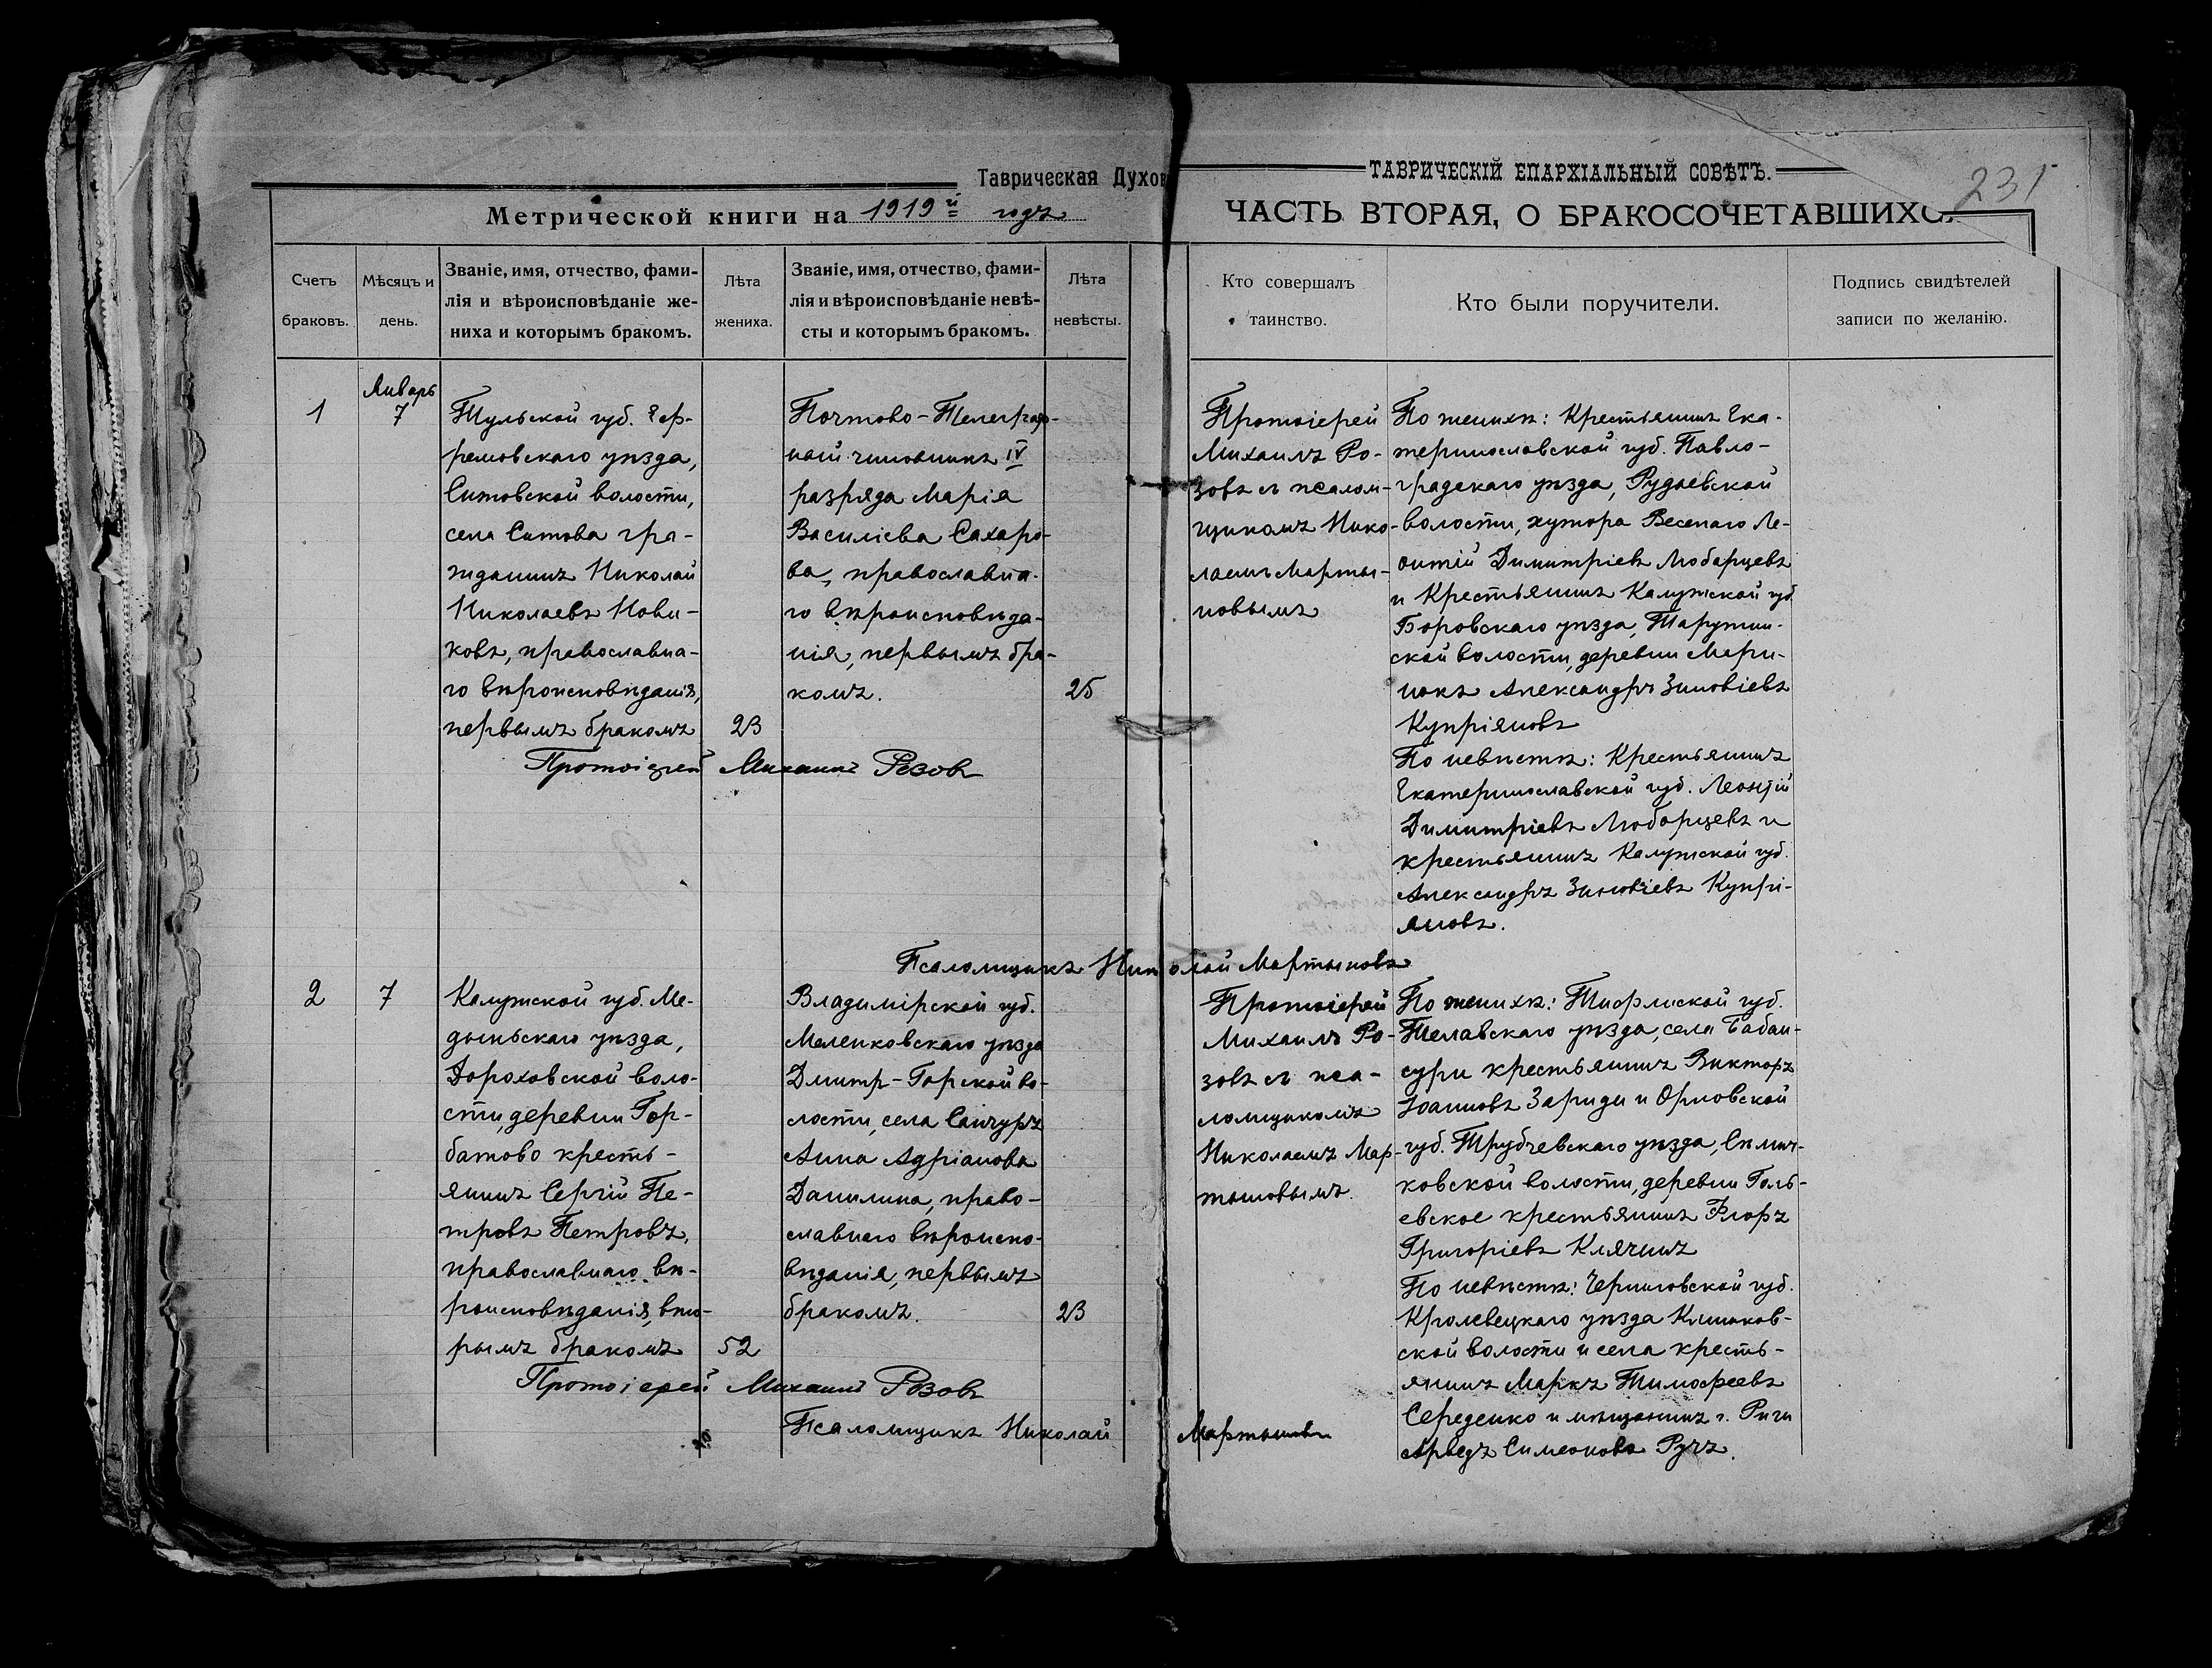 Таврическая Духов
Метрической книги на 1919й годъ
Счетъ браковъ.
Мѣсяцъ и день.
Званіе, имя, отчество, фами-
лія и вѣроисповѣданіе же-
ниха и которымъ бракомъ.
Лѣта жениха.
Званіе, имя, отчество, фами-
лія и вѣроисповѣданіе невѣ-
сты и которымъ бракомъ.
Лѣта невѣсты.
ТАВРИЧЕСКІЙ ЕПАРХІАЛЬНЫЙ СОВѢТЪ.
231
ЧАСТЬ ВТОРАЯ, О БРАКОСОЧЕТАВШИХС
Кто совершалъ
таинство.
Кто были поручители.
Подпись свидѣтелей
записи по желанію.
1
Январь
7
Тульской губ. Еф-
ремовскаго уѣзда,
Ситовской волости,
села Ситова гра-
жданинъ Николай
Николаевъ Нови-
ковъ, православна-
го вѣроисповѣданія,
первымъ бракомъ
23
Почтово-Телеграф-
ный чиновникъ IV
разряда Марія
Василіева Сахаро-
ва, православна-
го вѣроисповѣда-
нія, первымъ бра-
комъ.
25
Протоіерей
Михаилъ Ро-
зовъ съ псалом-
щикомъ Нико-
лаемъ Марты-
новымъ
По женихѣ: Крестьянинъ Ека-
теринославской губ. Павло-
градскаго уѣзда,
волости, хутора Веселаго Ле-
онтій Димитріевъ Любарцевъ
и Крестьянинъ Калужской губ.
Боровскаго уѣзда, Тарутин-
ской волости, деревни Мари-
нокъ Александръ Зиновіевъ
Купріяновъ
По невѣстѣ: Крестьянинъ
Екатеринославской губ. Леонтій
Димитріевъ Любарцевъ и
крестьянинъ Калужской губ.
Александръ Зиновіевъ Купрі-
яновъ.
Протоіерей Михаилъ Розовъ
Псаломщикъ Николай Мартыновъ
2
7
Калужской губ. Ме-
дынскаго уѣзда,
Дороховской воло-
сти, деревни Гор-
батово кресть-
янинъ Сергій Пе-
тровъ Петровъ,
православнаго вѣ-
роисповѣданія, вто-
рымъ бракомъ
52
Владимірской губ.
Меленковскаго уѣзда
Дмитр-Горской во-
лости, села Санчуръ
Анна Адріанова
Данилина, право-
славнаго вѣроиспо-
вѣданія, первымъ
бракомъ.
23
Протоіерей
Михаилъ Ро-
зовъ съ пса-
ломщикомъ
Николаемъ Мар-
тыновымъ.
По женихѣ: Тифлиской губ.
Телавскаго уѣзда, села Бабан-
сури крестьянинъ Викторъ
Іоанновъ Зариди и Орловской
губ. Трубчевскаго уѣзда, Сѣлич-
ковской волости, деревни Голь-
евское крестьянинъ Флоръ
Григоріевъ Клячинъ
По невѣстѣ: Черниговской губ.
Кролевецкаго уѣзда Клишков-
ской волости и села кресть-
янинъ Маркъ Тимофеевъ
Середенко и мѣщанинъ г. Риги
Арведъ Симеоновъ Ручъ.
Протоіерей Михаилъ Розовъ
Псаломщикъ Николай Мартыновъ